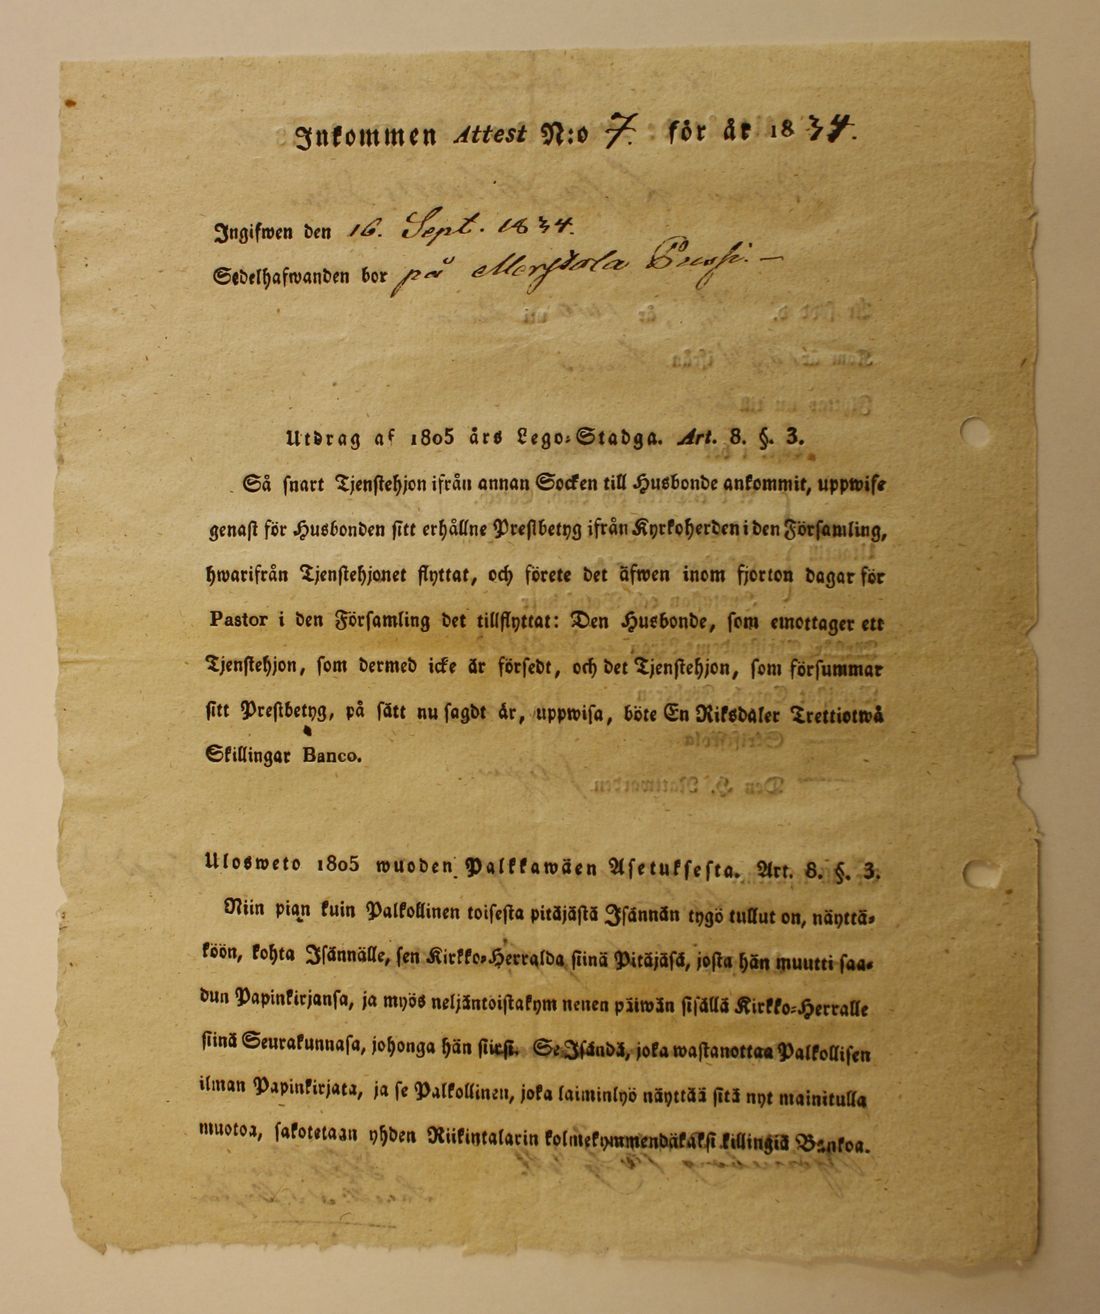 Inkommen Attest N:o 7. för år 1834.
Ingifwen den 16. Sept. 1834.
Sedelhafwanden bor på
Utdrag af 1805 års Lego-Stadga. Art. 8. §. 3.
Så snart Tjenstehjon ifrån annan Socken till Husbonde ankommit, uppwise
genast för Husbonden sitt erhållne Prestbetyg ifrån Kyrkoherden i den Församling,
hwarifrån Tjenstehjonet flyttat, och förete det äfwen inom fjorton dagar för
Pastor i den Församling det tillflyttat: Den Husbonde, som emottager ett
Tjenstehjon, som dermed icke är försedt, och det Tjenstehjon, som försummar
sitt Prestbetyg, på sätt nu sagdt är, uppwisa, böte En Riksdaler Trettiotwå
Skillingar Banco.
Ulosweto 1805 wuoden Palkkawäen Asetuksesta. Art. 8. §. 3.
Niin pian kuin Palkollinen toisesta pitäjästä Isännän tygö tullut on, näyttä-
köön, kohta Isännälle, sen Kirkko-Herralda siinä Pitäjäsä, josta hän muutti saa-
dun Papinkirjansa, ja myös neljäntoistakym nenen päiwän sisällä Kirkko-Herralle
siinä Seurakunnasa, johonga hän siirsi. Se Isändä, joka wastanottaa Palkollisen
ilman Papinkirjata, ja se Palkollinen, joka laiminlyö näyttää sitä nyt mainitulla
muotoa, sakotetaan yhden Riikintalarin kolmekymmendäkaksi killingiä Bankoa.